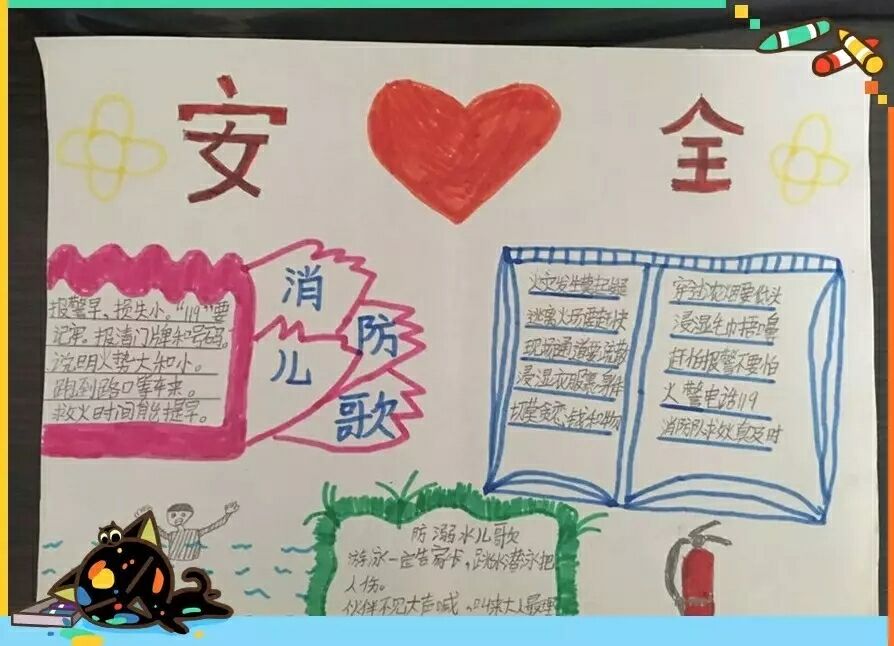 安 全
报警早，损失小。“119”要
记牢。报清门牌和号码。
说明火势大和小。
跑到路口等车来。
救火时间有出提早。
消
防
儿
歌
火灾发生莫起疑
逃离火场要趁快
现场通道要流散
浸湿衣服裹身体
切莫贪恋钱和物
穿过浓烟要低头
浸湿毛巾捂嘴鼻
赶怕报警不要怕
火警电话119
消防队求救真及时
防溺水儿歌
游泳一定告家长，跳水潜泳把
人伤。
伙伴不见大声喊，叫来大人最理